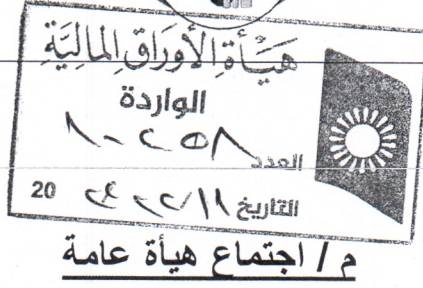 هيأة الأوراق المالية
الواردة
العدد
التاريخ 20
م / اجتماع هيأة عامة